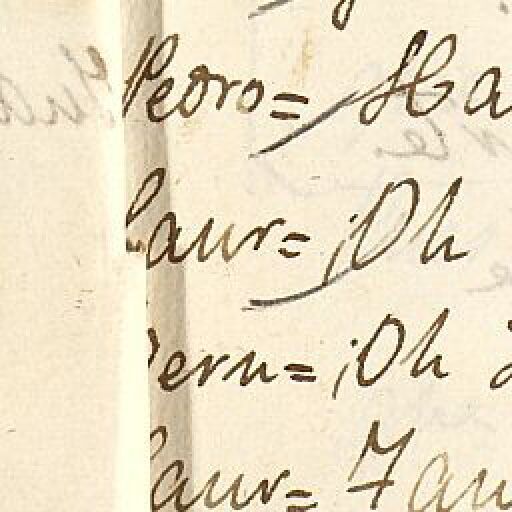 Pedro= Ha
Laur= ¡Oh
Bern= ¡Oh
Laur= Tan